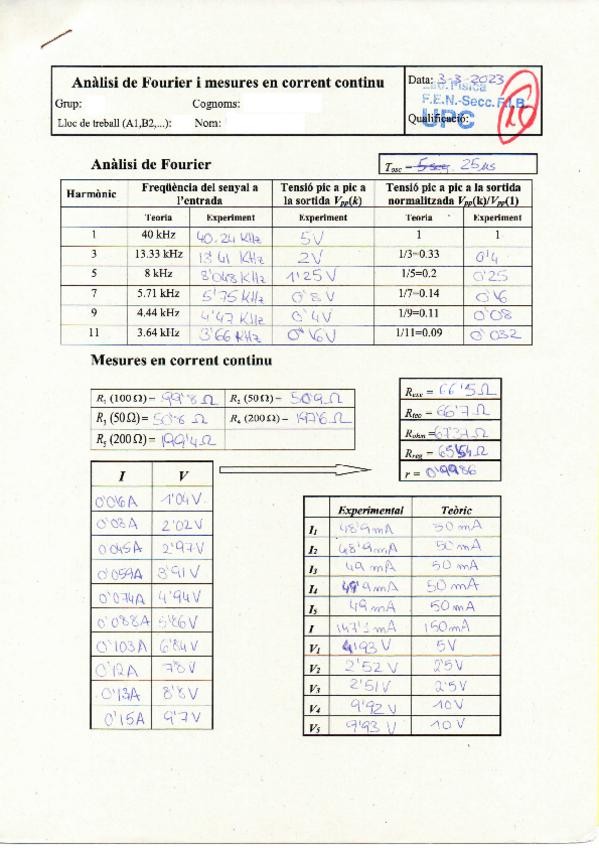 Anàlisi de Fourier i mesures en corrent continu
Data: 3-3-2023
Grup: Cognoms:
Lab. Física
F.E.N.-Secc. F.I.B.
Lloc de treball (A1,B2,...): Nom:
Qualificació:
UPC
Anàlisi de Fourier
Tosc = 5seg 25μs
Harmònic Freqüència del senyal a l'entrada Tensió pic a pic a la sortida Vpp(k) Tensió pic a pic a la sortida normalitzada Vpp(k)/Vpp(1)
Teoria Experiment Experiment Teoria Experiment
1 40 kHz 40.24 KHz 5V 1 1
3 13.33 kHz 13'41 KHz 2V 1/3=0.33 0'4
5 8 kHz 8'048 KHz 1'25V 1/5=0.2 0'25
7 5.71 kHz 5'75 KHz 0'8V 1/7=0.14 0'16
9 4.44 kHz 4'47 KHz 0'4V 1/9=0.11 0'08
11 3.64 kHz 3'66 KHz 0'16V 1/11=0.09 0'032
Mesures en corrent continu
R1 (100 Ω) = 99'8 Ω R2 (50 Ω) = 50'9 Ω
R3 (50 Ω) = 50'8 Ω R4 (200 Ω) = 197'6 Ω
R5 (200 Ω) = 199'4 Ω
Rexe = 66'5 Ω
Rteo = 66'7 Ω
Rohm = 67'37 Ω
Rreg = 65'54 Ω
r = 0'9986
I V
0'016A 1'04V
0'03A 2'02V
0'045A 2'97V
0'059A 3'91V
0'074A 4'94V
0'088A 5'86V
0'103A 6'84V
0'12A 7'8V
0'13A 8'8V
0'15A 9'7V
Experimental Teòric
I1 48'9mA 50mA
I2 48'9mA 50mA
I3 49mA 50mA
I4 49'9mA 50mA
I5 49mA 50mA
I 147'3mA 150mA
V1 4'93V 5V
V2 2'52V 2'5V
V3 2'51V 2'5V
V4 9'92V 10V
V5 9'93V 10V